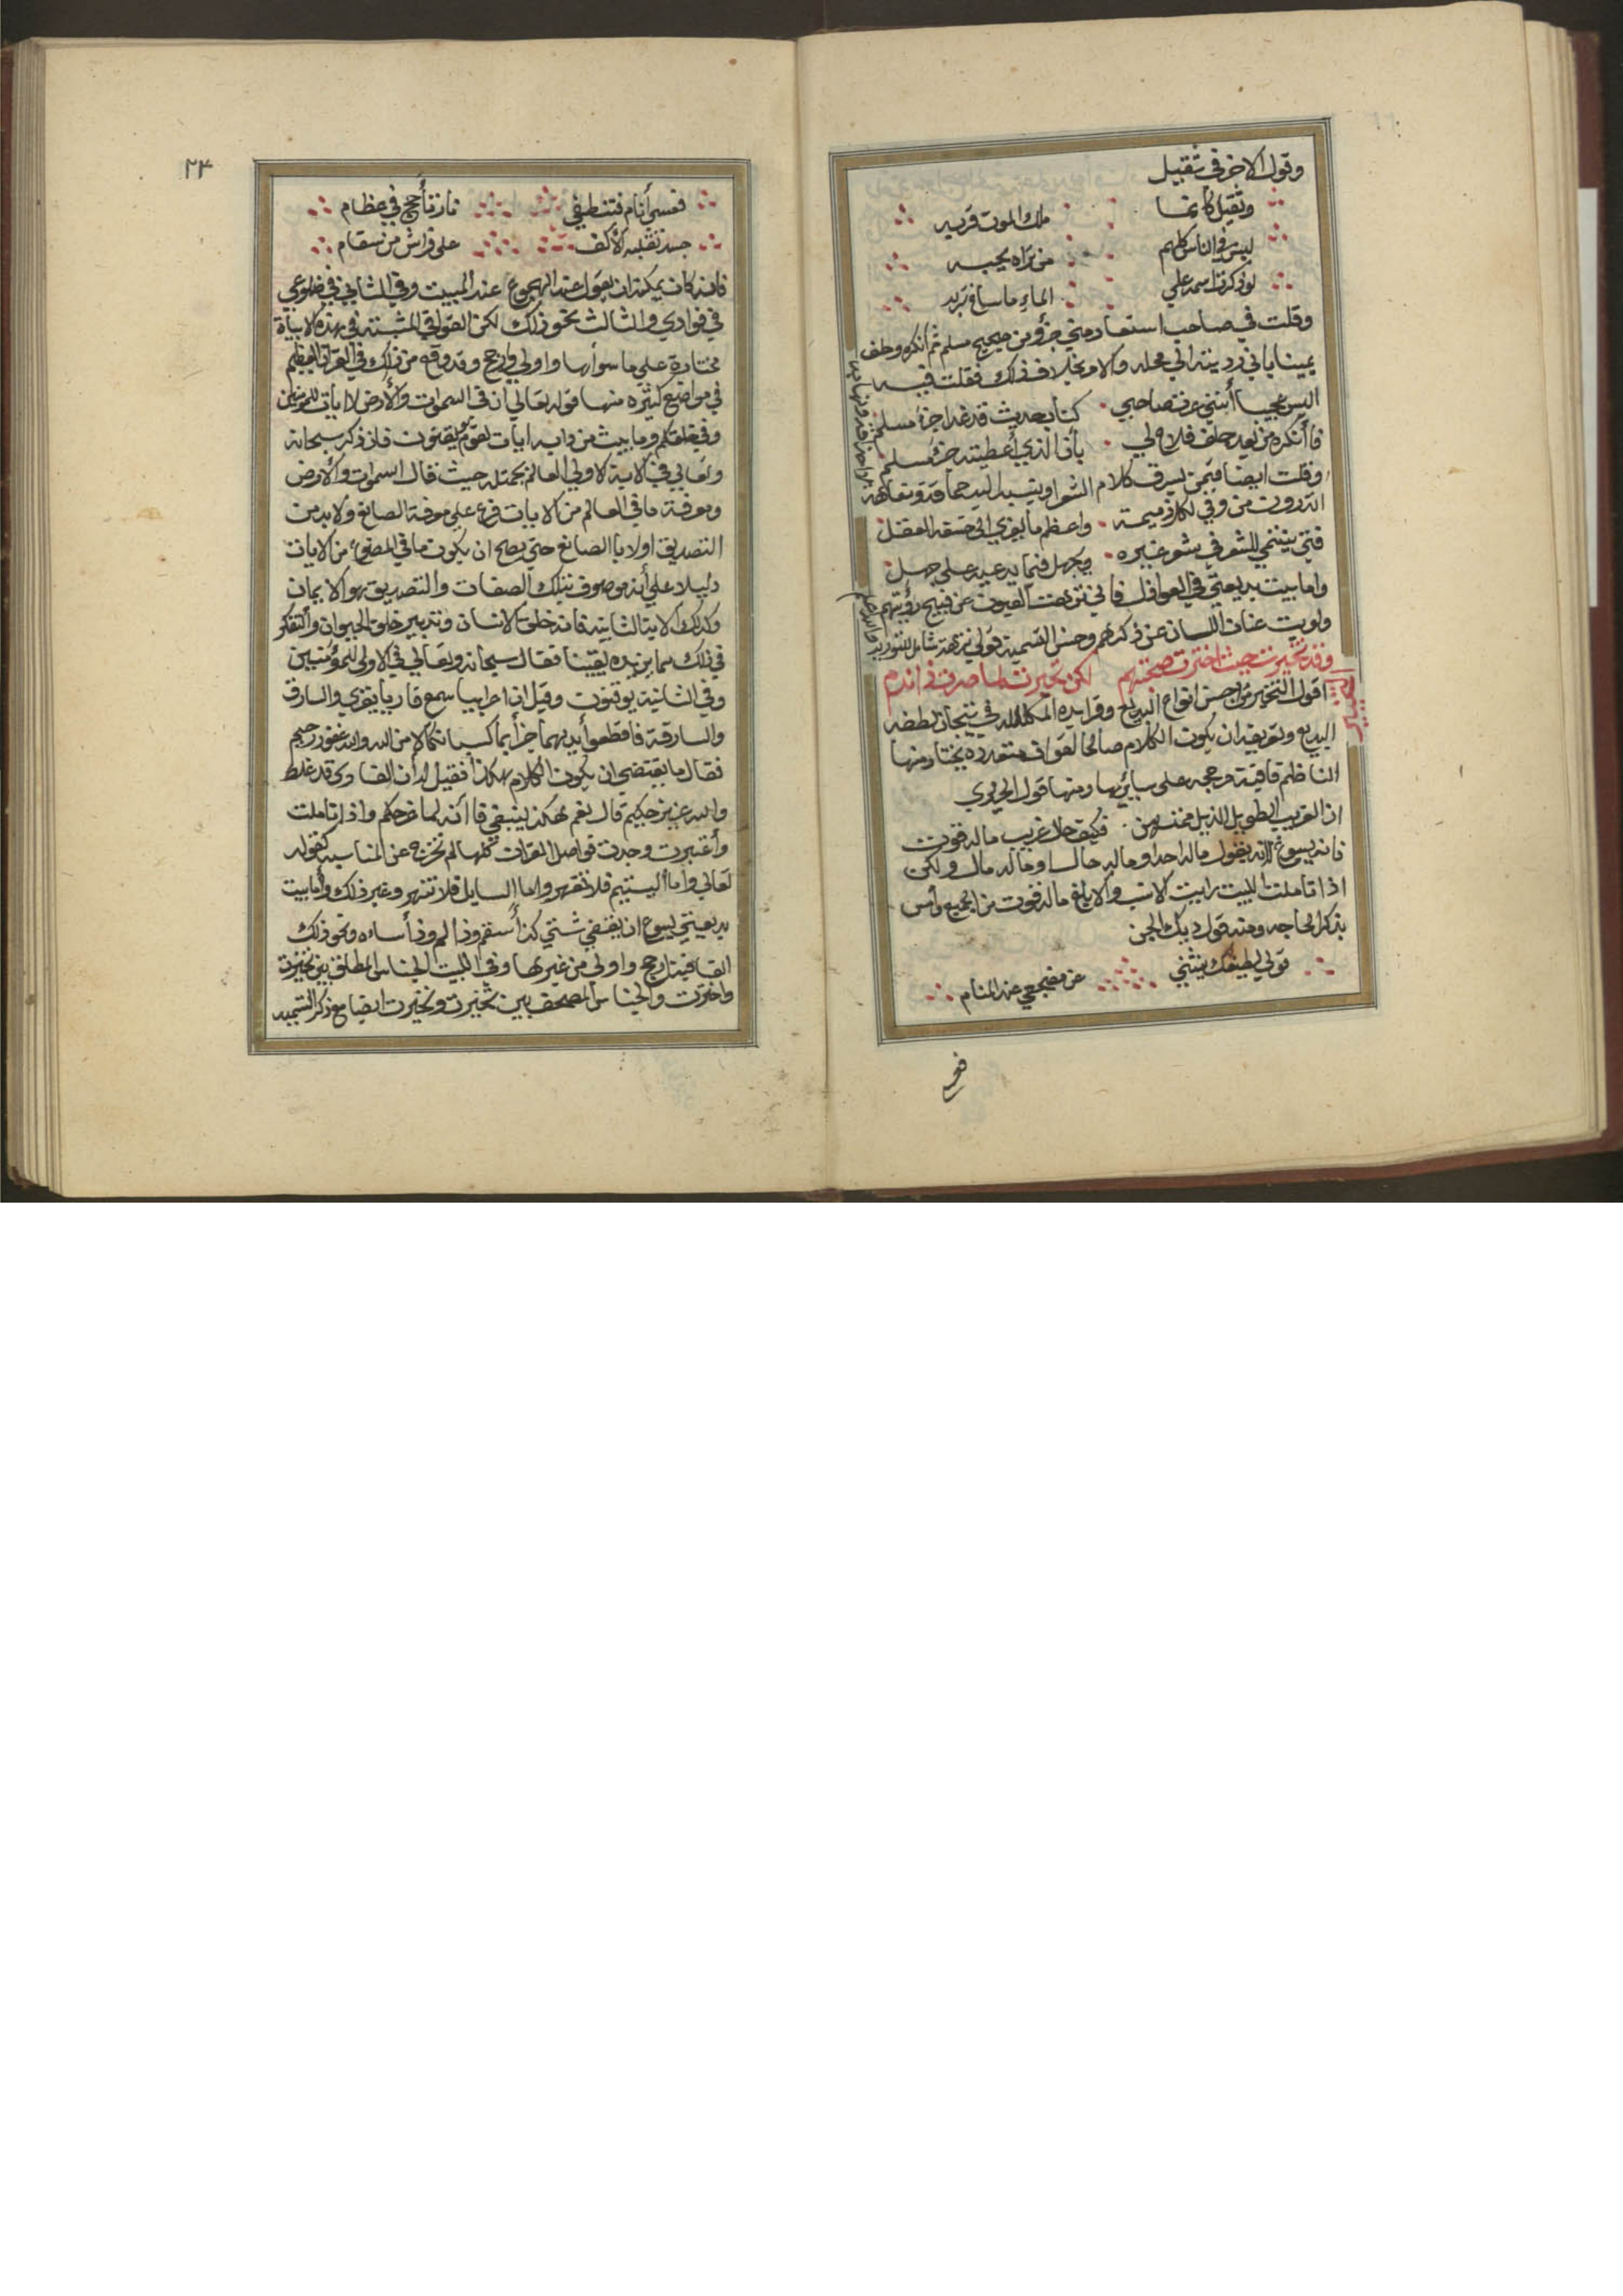 وقول الاخر في ثقيل
وثقيل كانما ملك الموت قربه
ليس في الناس كلهم من تراه يحبه
لو ذكرنا اسمه علي الماء ما ساغ شربه
وقلت في صاحب استعار مني جزؤ من صحيح مسلم ثم انكره وحلف
يمينا باني رديته الي محله والامر بخلاف ذلك فقلت فيه
اليس عجيبا أنني عند صاحبي كتاب حديث قد غدا جزء مسلم
فأنكره من بعد حلف فلاح لي بأن الذي أعطيته جزء مسلم
وقلت ايضا فيمن يسرق كلام الشعرا وينسبه اليه
اتدرون من وفي لكل ذميمة واعظم ما يعزي الى خسة العقل
فتى ينتمي للشعر في شعر غيره وجهل فيما يدعيه على جهل
واما بيت بديعتي في العواذل فاني نزهت العيون عن قبيح رؤيتهم
ولويت عنان اللسان عن ذكرهم وحسن التسمية قولي نزهت
وقد تخيرت حيث اخترت صحبتهم لكن تحيرت لما صرت في ندم
التخيير
اقول التخيير من احسن انواع البديع وفرايده المكلله في تيجان لطفه
البديع وتعريفه ان يكون الكلام صالحا لقوافي متعدده يختار منها
الناظم قافية مرجحه على سايرها ومنها قول الحريري
ان الغريب الطويل الذيل ممتهن فكيف حال غريب ماله قوت
فانه يسوغ انه يقول ماله احد او ماله حال او ماله مال ولكن
اذا تاملت البيت رايت الانسب والابلغ ماله قوت من الجميع وأمس
بذكر الحاجه ومنه قول ديك الجن
قولي لطيفك ينثني عن مضجعي عند المنام
فعسى
٢٣
فعسى أنام فتنطفي نار تأجج في عظام
جسد تقلبه الأكف على فراش من سقام
فانه كان يمكنه ان يقول عند الهجوع عند المبيت وفي الثاني في ضلوعي
في فوادي والثالث نحو ذلك لكن القوافي المثبته في هذه الابيات
مختارة علي ما سواها واولي وارجح وقد وقع من ذلك في القرآن العظيم
في مواضع كثيره منها قوله تعالي ان في السموات والأرض لايات للمؤمنين
وفي خلقكم وما يبث من دابه ايات لقوم يوقنون فان ذكر سبحانه
وتعالي في الاية الاولي العالم بجملته حيث قال السموات والارض
ومعرفة ما في العالم من الايات فرع علي معرفة الصانع ولا بد من
التصديق اولا بالصانع حتي يصح ان يكون ما في المصنوع من الايات
دليلا علي أنه موصوف بتلك الصفات والتصديق هو الايمان
وكذلك الاية الثانيه فانه خلق الانسان وتدبير خلق الحيوان والتفكر
في ذلك مما يزيده يقينا فقال سبحانه وتعالي في الاولى للمؤمنين
وفي الثانية يوقنون وقيل ان اعرابيا سمع قاريا يقري والسارق
والسارقة فاقطعوا أيديهما جزأ بما كسبا نكالا من الله والله غفور رحيم
فقال ما يقتضي ان يكون الكلام هكذا فقيل له ان القارى قد غلط
والله عزيز حكيم قال نعم هكذا ينبغي فاانه لما عز حكم واذا تاملت
وأعتبرت وجدت فواصل القران كلها لم تخرج عن المناسبه كقوله
تعالي وأما اليتيم فلا تقهر واما السايل فلا تنهر وغير ذلك وأما بيت
بديعيتي يسوع ان يقتفي شتي كذا سقم وذا الم وذا ساءه ونحو ذلك
القافية ارجح واولى من غيرها وفي البيت الجناس المطلق بين تخيرت
واخترت والجناس المصحف بين تخيرت وتحيرت ايضا مع ذكر التسميه